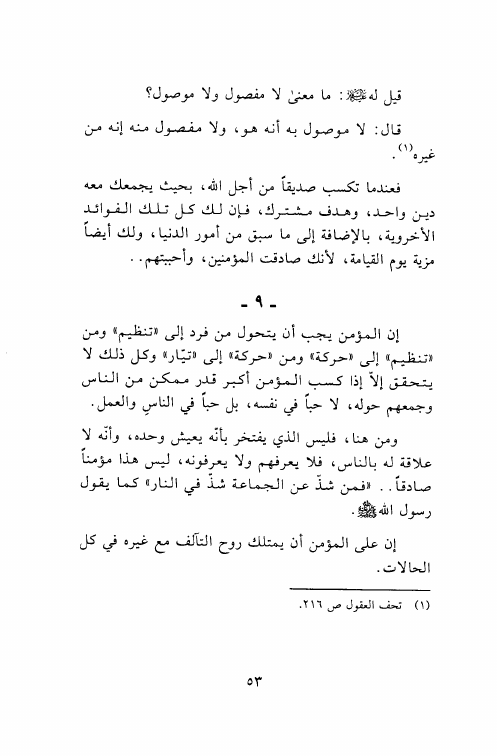 قيل له ﷺ: ما معنىٰ لا مفصول ولا موصول؟
قال: لا موصول به أنه هو، ولا مفصول منه إنه من
غيره(١).
فعندما تكسب صديقاً من أجل الله، بحيث يجمعك معه
دين واحد، وهدف مشترك، فإن لك كل تلك الفوائد
الأخروية، بالإضافة إلى ما سبق من أمور الدنيا، ولك أيضاً
مزية يوم القيامة، لأنك صادقت المؤمنين، وأحببتهم..
ـ ٩ ـ
إن المؤمن يجب أن يتحول من فرد إلى «تنظيم» ومن
«تنظيم» إلى «حركة» ومن «حركة» إلى «تيّار» وكل ذلك لا
يتحقق إلاّ إذا كسب المؤمن أكبر قدر ممكن من الناس
وجمعهم حوله، لا حباً في نفسه، بل حباً في الناس والعمل.
ومن هنا، فليس الذي يفتخر بأنّه يعيش وحده، وأنّه لا
علاقة له بالناس، فلا يعرفهم ولا يعرفونه، ليس هذا مؤمناً
صادقاً.. «فمن شذّ عن الجماعة شذّ في النار» كما يقول
رسول الله ﷺ.
إن على المؤمن أن يمتلك روح التآلف مع غيره في كل
الحالات.
(١) تحف العقول ص ٢١٦.
٥٣